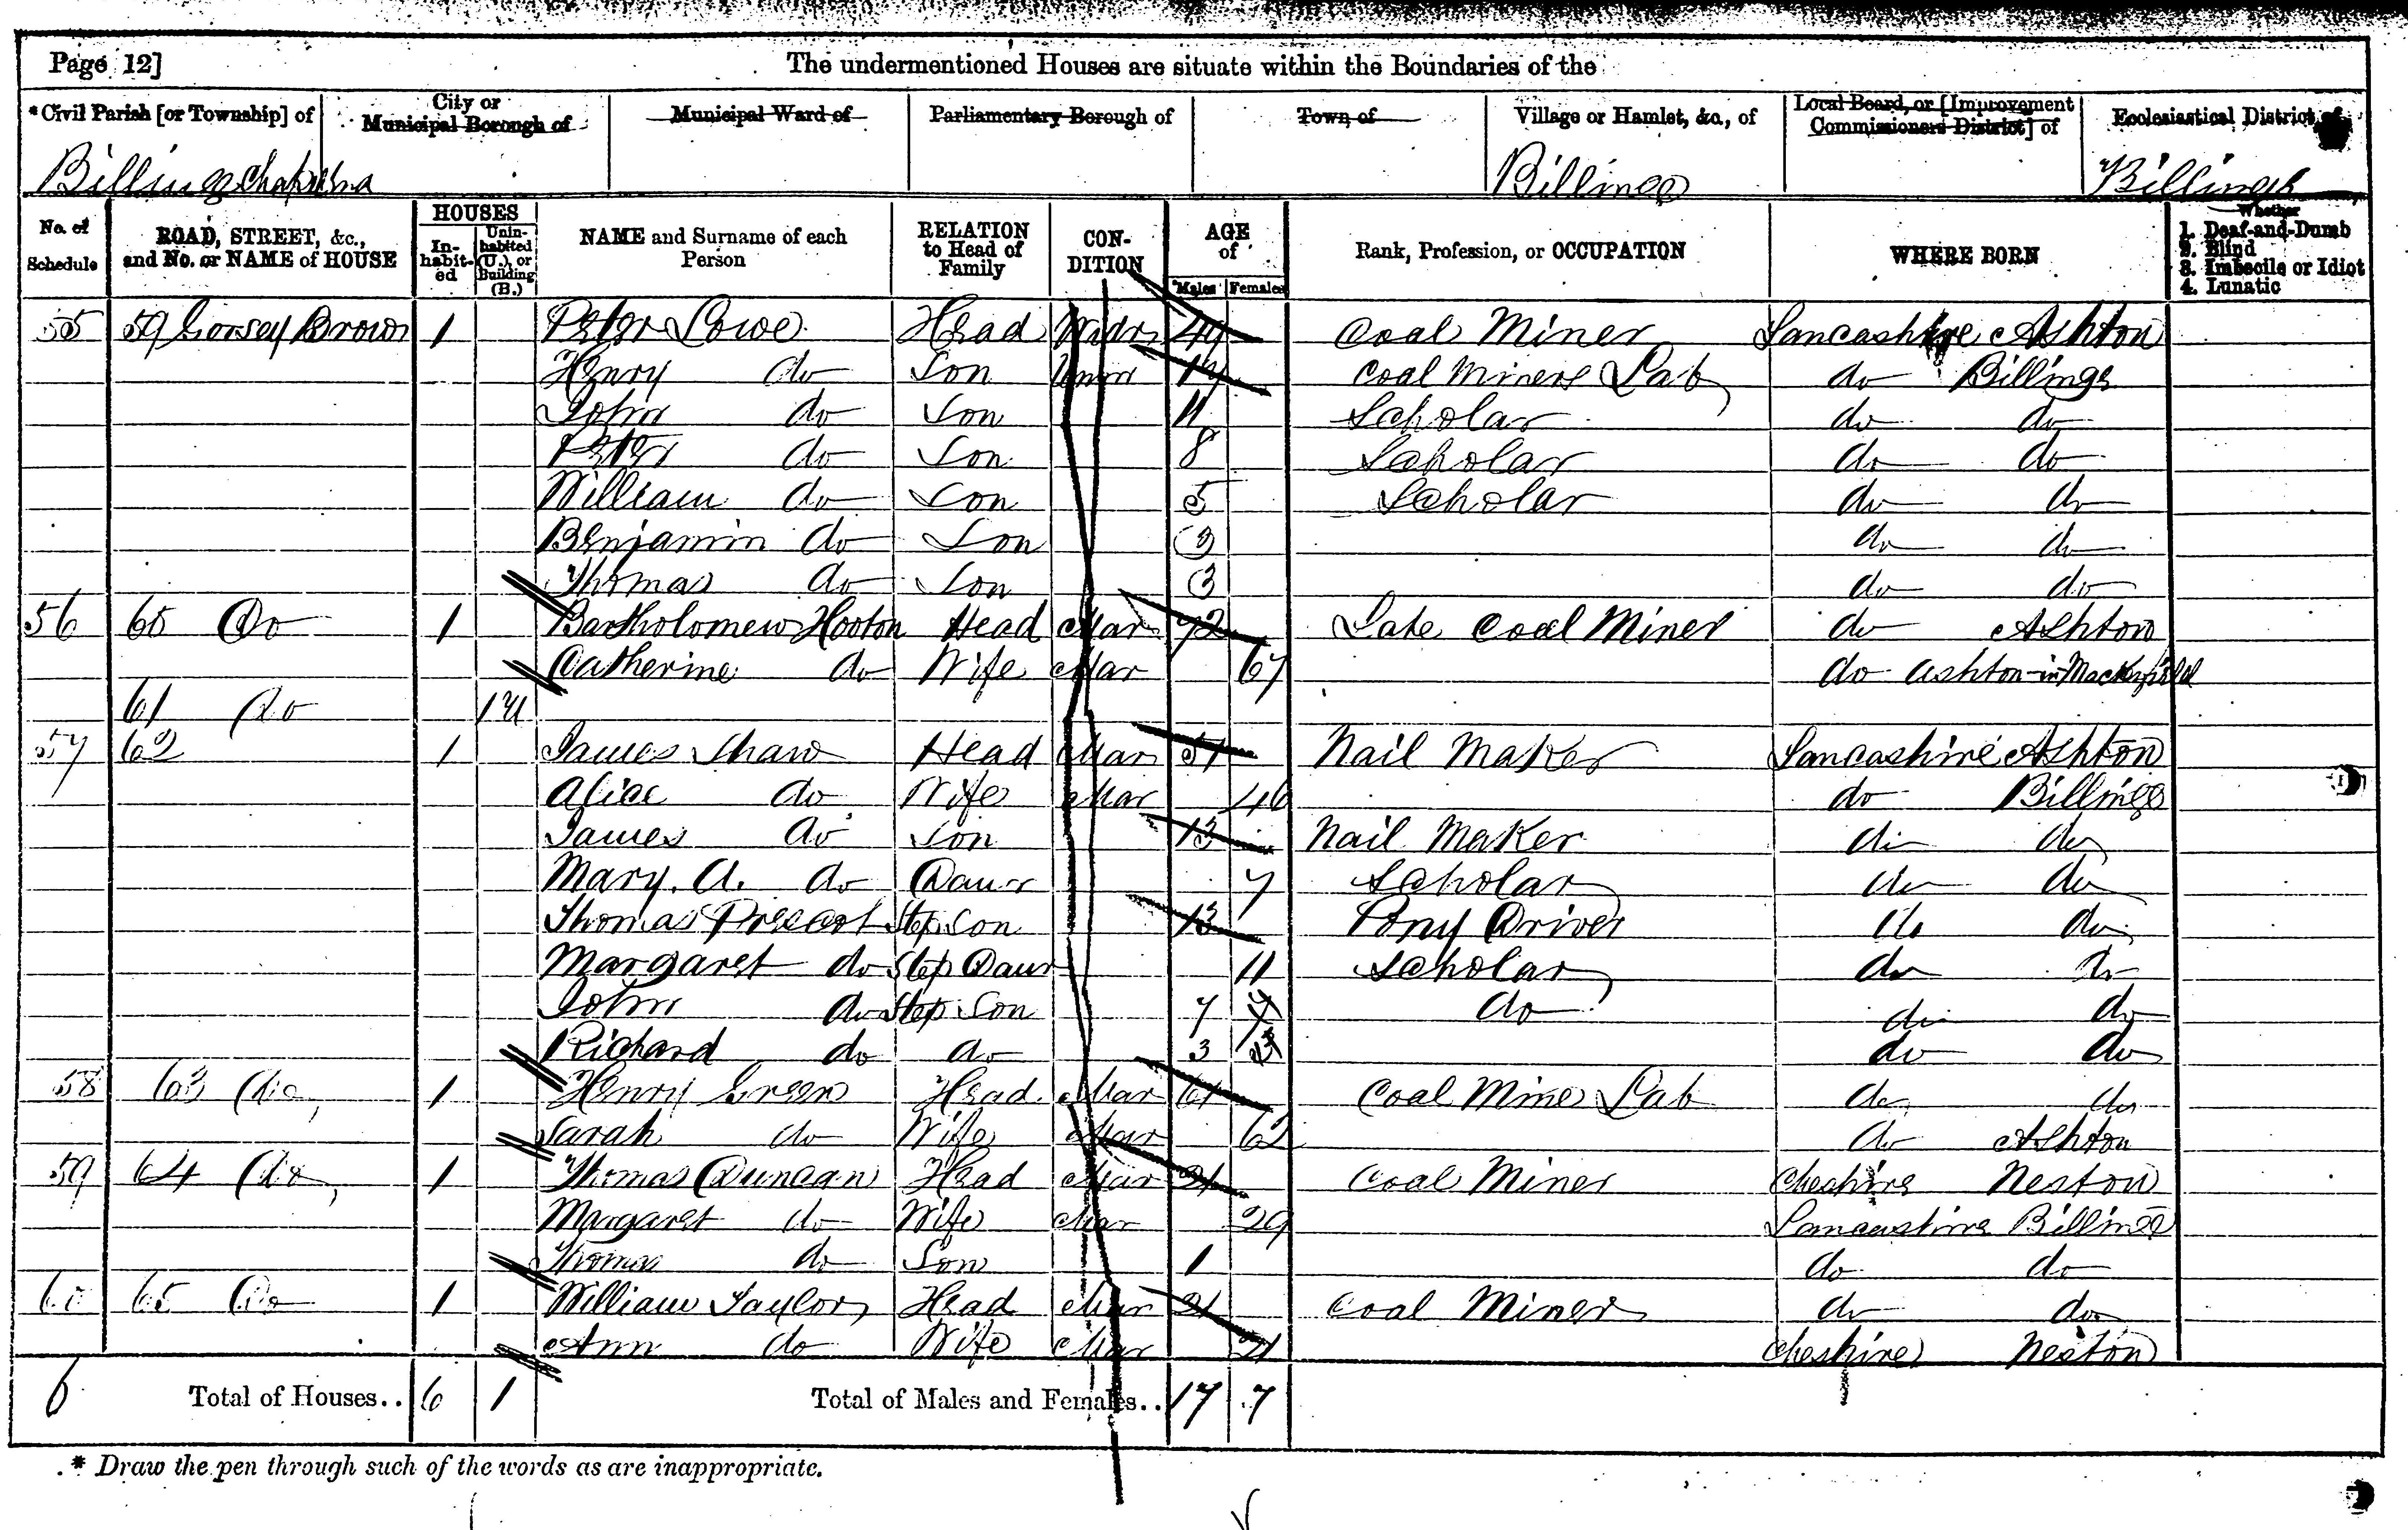 Page 12]
The undermentioned Houses are situate within the Boundaries of the
*Civil Parish [or Township] of City or Municipal Borough of Municipal Ward of Parliamentary Borough of Town of Village or Hamlet, &c., of Local Board, or [Improvement Commissioners District] of Ecclesiastical District of
Billinge Billinge Billinge
No. of Schedule ROAD, STREET, &c., and No. or NAME of HOUSE HOUSES Inhabited Uninhabited (U.), or Building (B.) NAME and Surname of each Person RELATION to Head of Family CONDITION AGE of Males Females Rank, Profession, or OCCUPATION WHERE BORN Whether 1. Deaf-and-Dumb 2. Blind 3. Imbecile or Idiot 4. Lunatic
55 59 Gorsey Brow 1 Peter Lowe Head Widr 49 Coal Miner Lancashire Ashton
Henry do Son Unm Coal Miners Lab do Billinge
John do Son 11 Scholar do do
Peter do Son 8 Scholar do do
William do Son 5 Scholar do do
Benjamin do Son 3 do do
Thomas do Son 3 do do
56 60 Do 1 Bartholomew Hooton Head Mar 72 Late Coal Miner do Ashton
Catherine do Wife Mar 67 do Ashton-in-Mackerfield
61 Do 1 U
57 62 1 James Shaw Head Mar 51 Nail Maker Lancashire Ashton
Alice do Wife Mar 46 do Billinge
James do Son 13 Nail Maker do do
Mary. A. do Daur 7 Scholar do do
Thomas Prescot Step Son 13 Pony Driver do do
Margaret do Step Daur 11 Scholar do do
John do Step Son 7 do do do
Richard do do 3 do do
58 63 do 1 Henry Green Head Mar 61 Coal Mine Lab do do
Sarah do Wife Mar 62 do Ashton
59 64 do 1 Thomas Duncan Head Mar 31 Coal Miner Cheshire Neston
Margaret do Wife Mar 29 Lancashire Billinge
Thomas do Son 1 do do
60 65 Do 1 William Taylor Head Mar 21 Coal Miner do do
Ann do Wife Mar 21 Cheshire Neston
6 Total of Houses.. 6 1 Total of Males and Females.. 17 7
* Draw the pen through such of the words as are inappropriate.